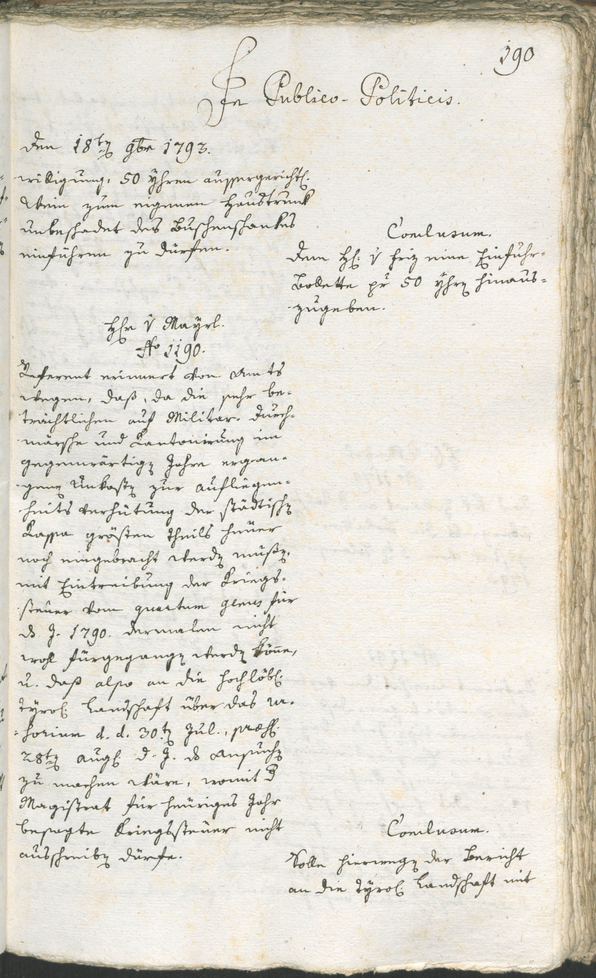 190
In Publico-Politicis.
den 18ty 9bre 1793.
willigung, 50 Yhren aussergerichtl.
Wein zum eigenen Haustrunk
unbeschadet des Buschenschankes
einführen zu dürfen.
Conclusum.
dem H: v Friz eine Einfuhr-
Bolette pr 50 Yhrn hinaus-
zugeben.
Hr v Mayrl.
No 1190.
Referent erinnert von Amts
wegen, daß, da die sehr be-
trächtlichen auf Militar-Durch-
märsche und Kantonirung im
gegenwärtign Jahre ergan-
genen Unkostn zur
verhütung der städtischn
Kassa grösten theils heuer
noch eingebracht werdn müßn,
mit Eintreibung der Kriegs-
steuer vom quantum plens für
ds J. 1790. dermalen nicht
wohl fürgegangn werdn könne,
u. daß also an die hochlöbl.
tyrol. Landschaft über das
d. d. 30tn Jul., præs.
28tn Augl. d. J. ds Ansuchn
zu machen wäre, womit
Magistrat für heuriges Jahr
besagte Kriegssteuer nicht
ausschreibn dürfe.
Conclusum.
Solle hierwegn der Bericht
an die tyrol. Landschaft mit